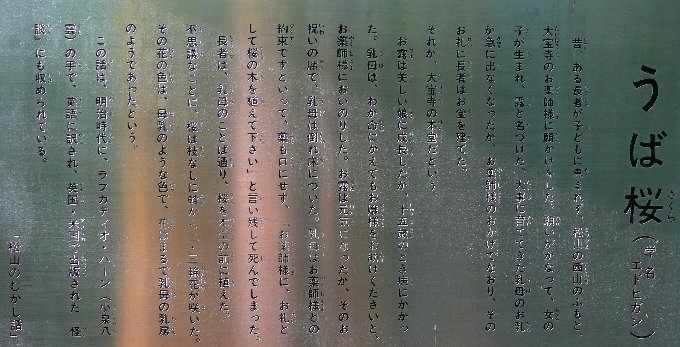 うば桜（学名 エドヒガン）
昔、ある長者が子どもに恵まれず、松山の西山のふもと、
大宝寺のお薬師様に願かけをした。願いがかなって、女の
子が生まれ、露と名づけた。大事に育ててきた乳母のお乳
が急に出なくなったが、お薬師様のおかげでなおり、その
お礼に長者はお堂を建てた。
それが、大宝寺の本堂だという。
お露は美しい娘に成長したが、十五歳のとき病にかかっ
た。乳母は、わが命にかえてもお嬢様をお助けくださいと、
お薬師様においのりした。お露は元気になったが、そのお
祝いの席で、乳母は倒れ床についた。乳母はお薬師様との
約束ですといって、薬も口にせず、「お薬師様に、お礼と
して桜の木を植えて下さい」と言い残して死んでしまった。
長者は、乳母のことば通り、桜を本堂の前に植えた。
不思議なことに、桜は枝なしに幹から二・三輪花が咲いた。
その花の色は、母乳のような色で、花はまるで乳母の乳房
のようであったという。
この話は、明治時代に、ラフカディオ・ハーン（小泉八
雲）の手で、英語に訳され、英国・米国で出版された「怪
談」にも収められている。
「松山のむかし話」